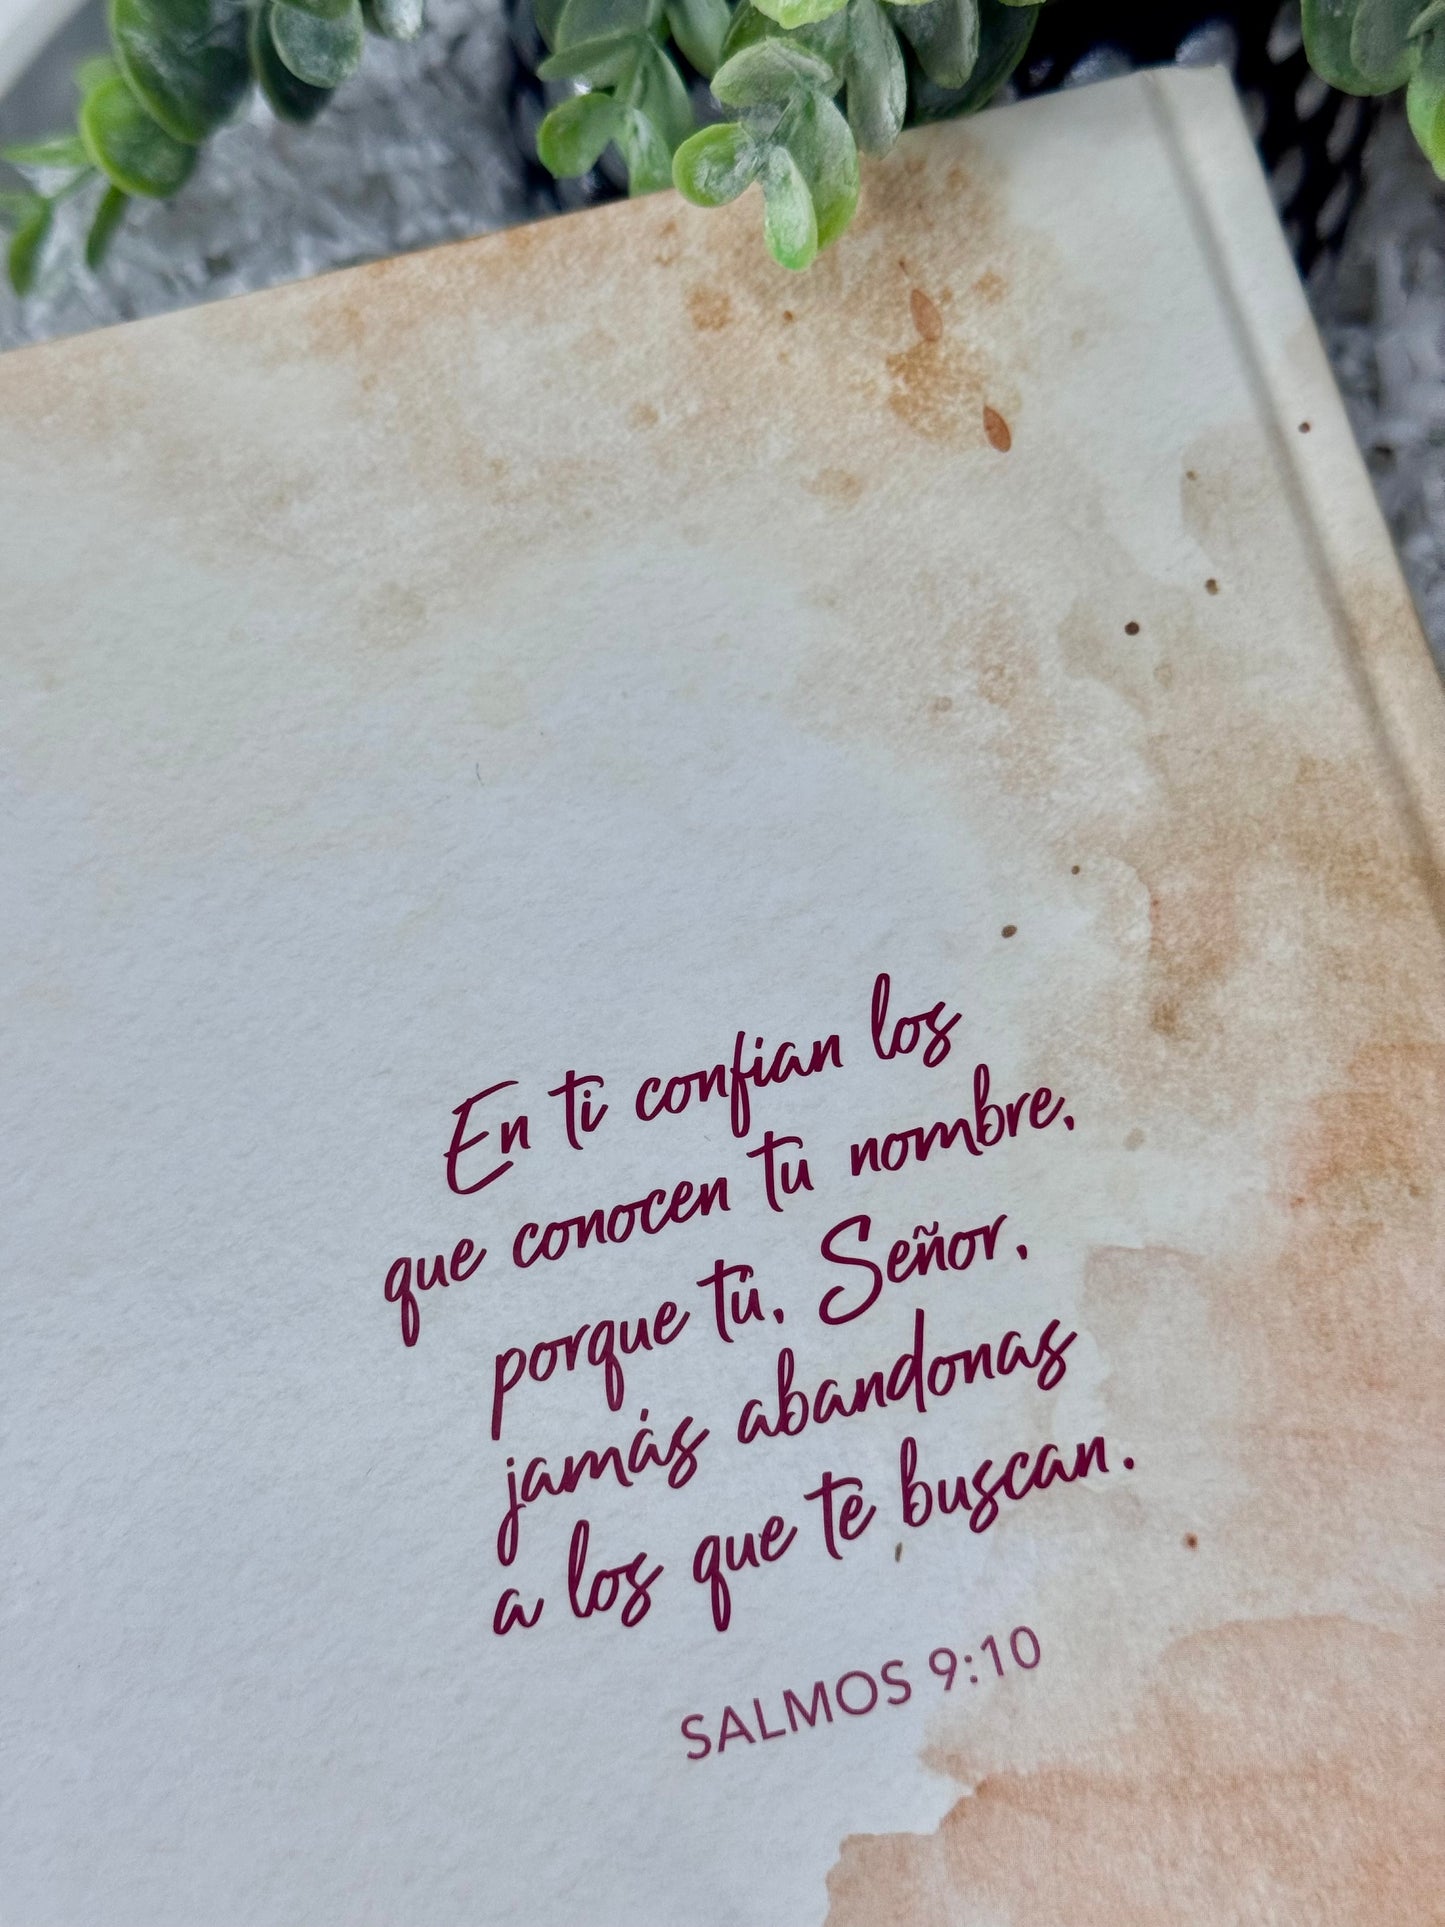 En ti confían los
que conocen tu nombre,
porque tú, Señor,
jamás abandonas
a los que te buscan.
SALMOS 9:10